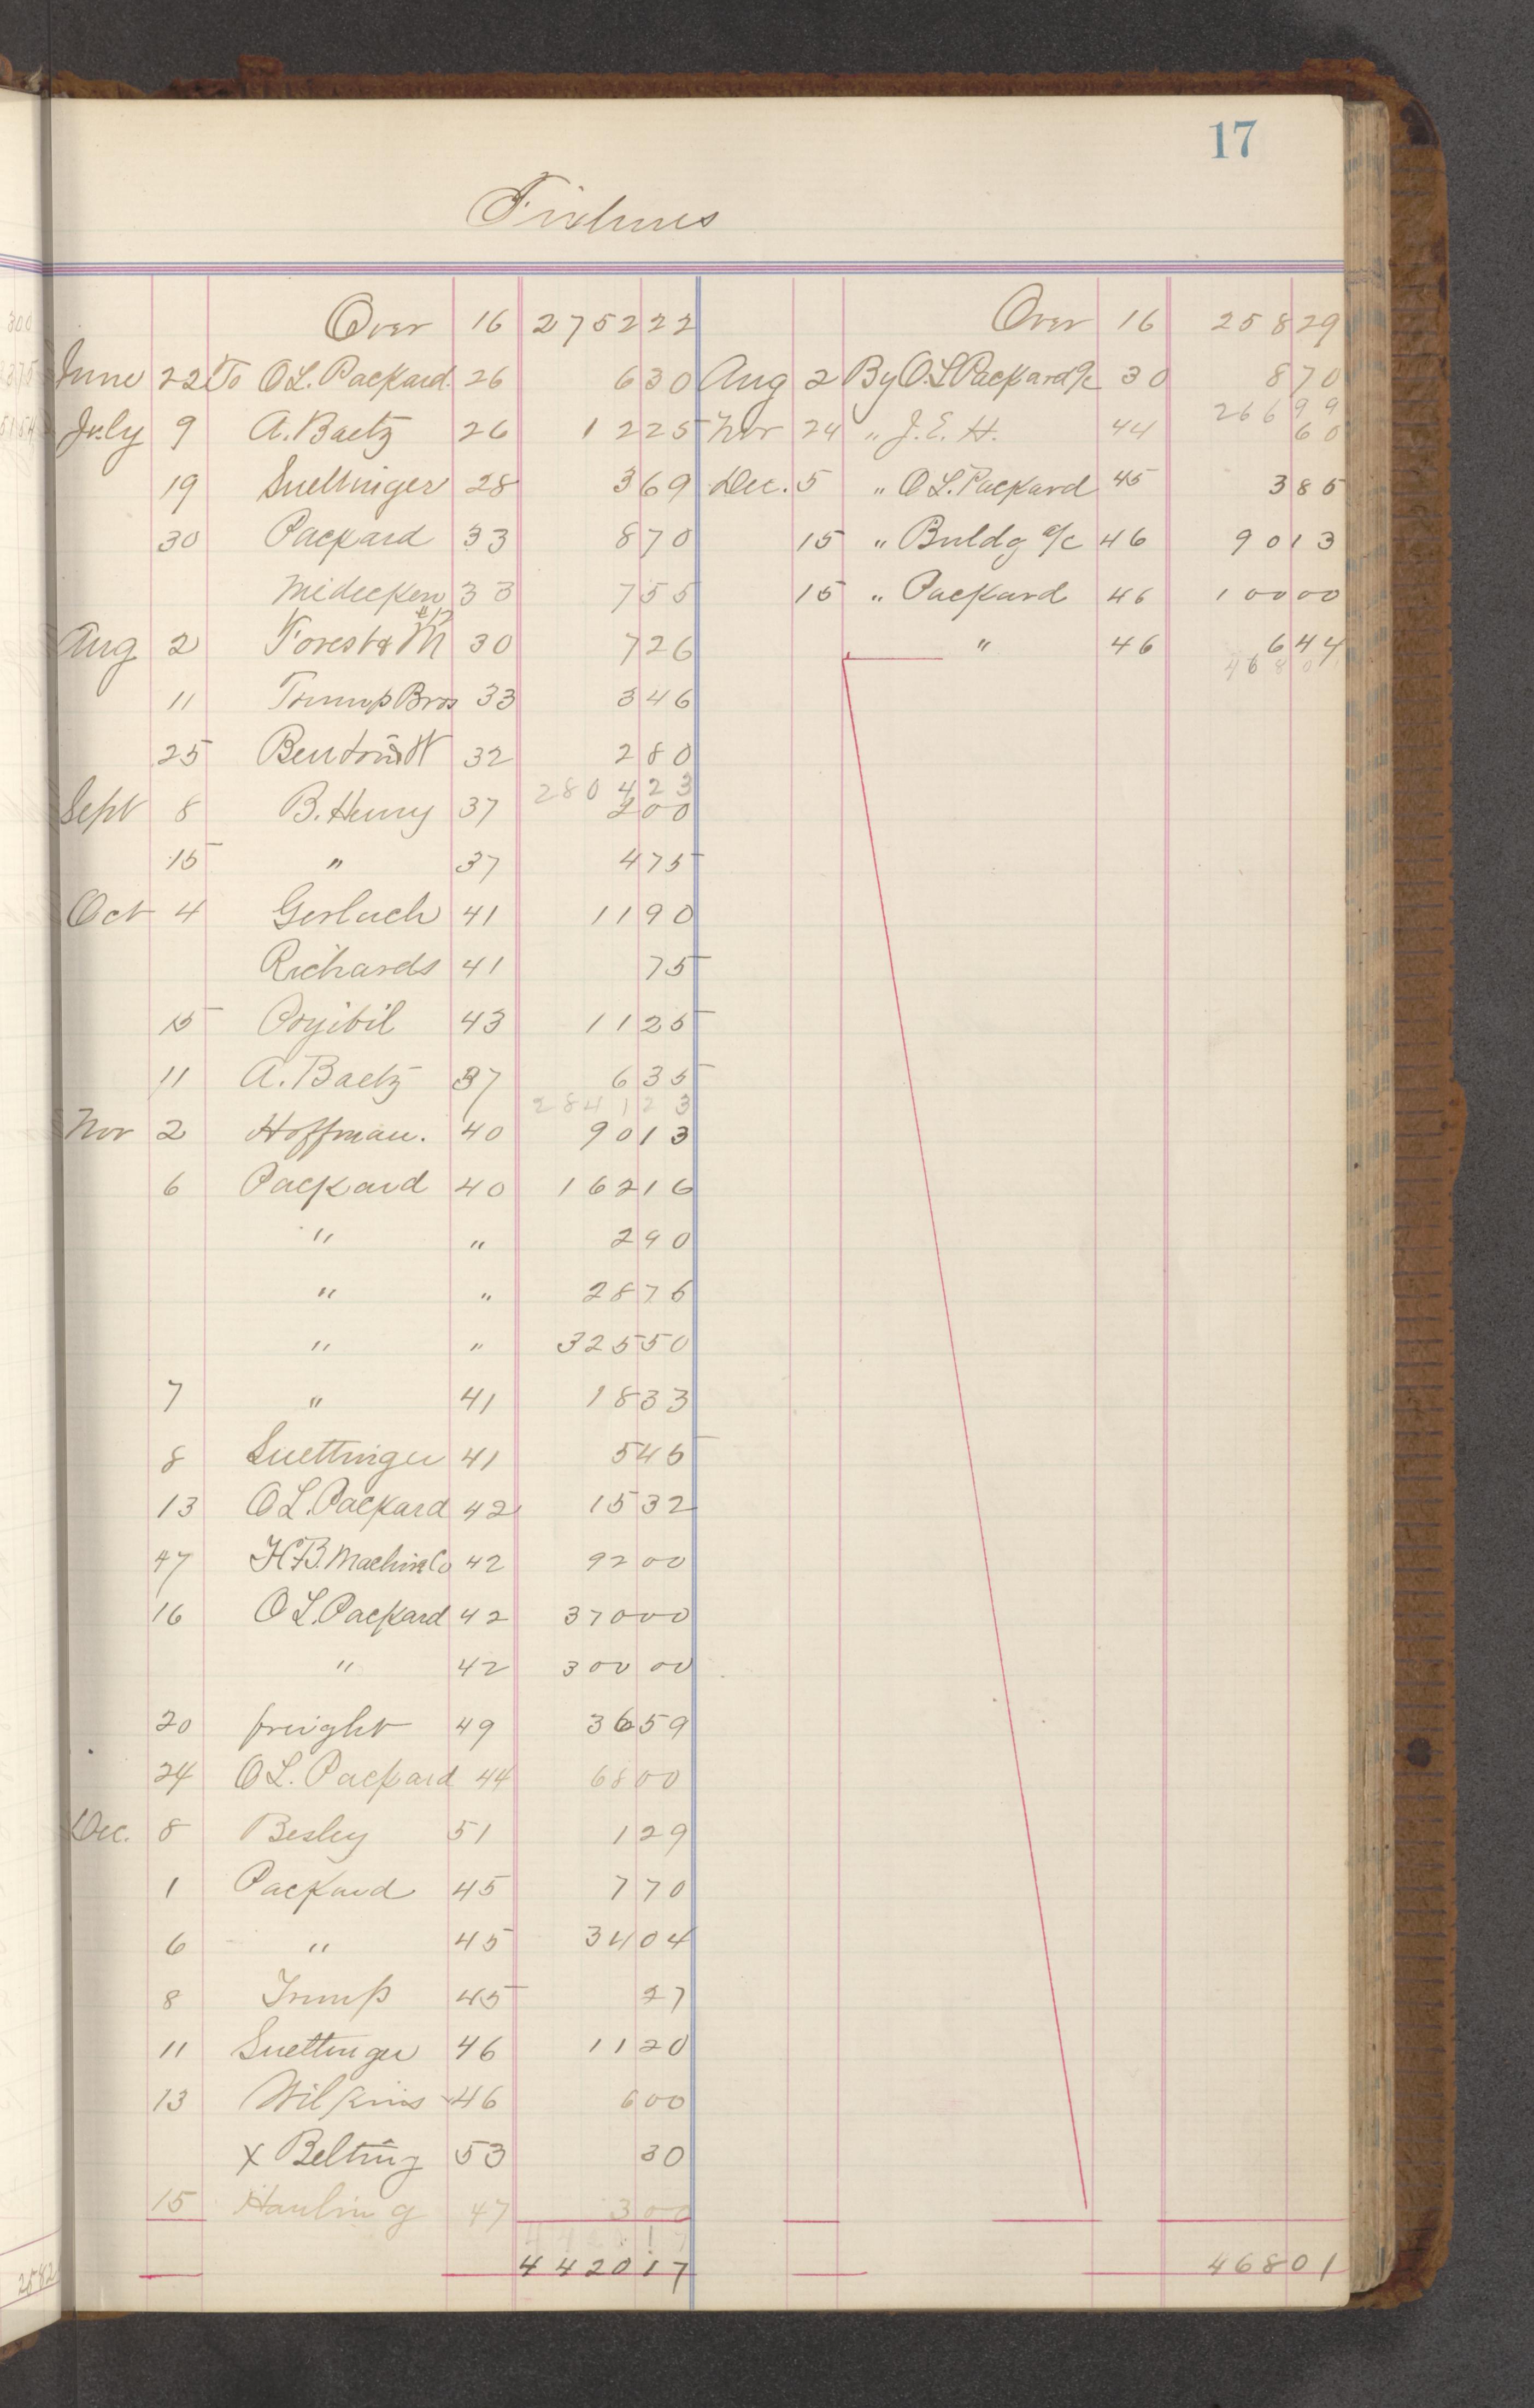 17
Fixtures
Over 16 2752 22
June 22 To O.L. Packard. 26 6 30
July 9 A. Baetz 26 12 25
19 Suettinger 28 3 69
30 Packard 33 8 70
Midecken 33 7 55
Aug 2 Forest & M 30 7 26
11 Trump Bros 33 3 46
25 32 2 80
2804 23
Sept 8 B. Henry 37 2 00
15 " 37 4 75
Oct 4 Gerlach 41 11 90
Richards 41 75
15 Pryibil 43 11 25
11 A. Baetz 37 6 35
2841 23
Nov 2 Hoffman. 40 90 13
6 Packard 40 162 16
" " 2 90
" " 28 76
" " 325 50
7 " 41 18 33
8 Suettinger 41 5 45
13 O L. Packard 42 15 32
17 H.B. Machine Co 42 92 00
16 O L. Packard 42 370 00
" 42 300 00
20 freight 49 36 59
24 O L. Packard 44 68 00
Dec. 8 Besley 51 1 29
1 Packard 45 7 70
6 " 45 34 04
8 Trump 45 27
11 Suettinger 46 11 20
13 Wilkins 46 6 00
x Belting 53 30
15 Hauling 47 3 00
4420 17
Over 16 258 29
Aug 2 By O.L Packard a/c 30 8 70
266 99
Nov 24 " J.E.H. 44 60
Dec. 5 " O L. Packard 45 3 85
15 " Buldg a/c 46 90 13
15 " Packard 46 100 00
" 46 6 44
468 01
468 01